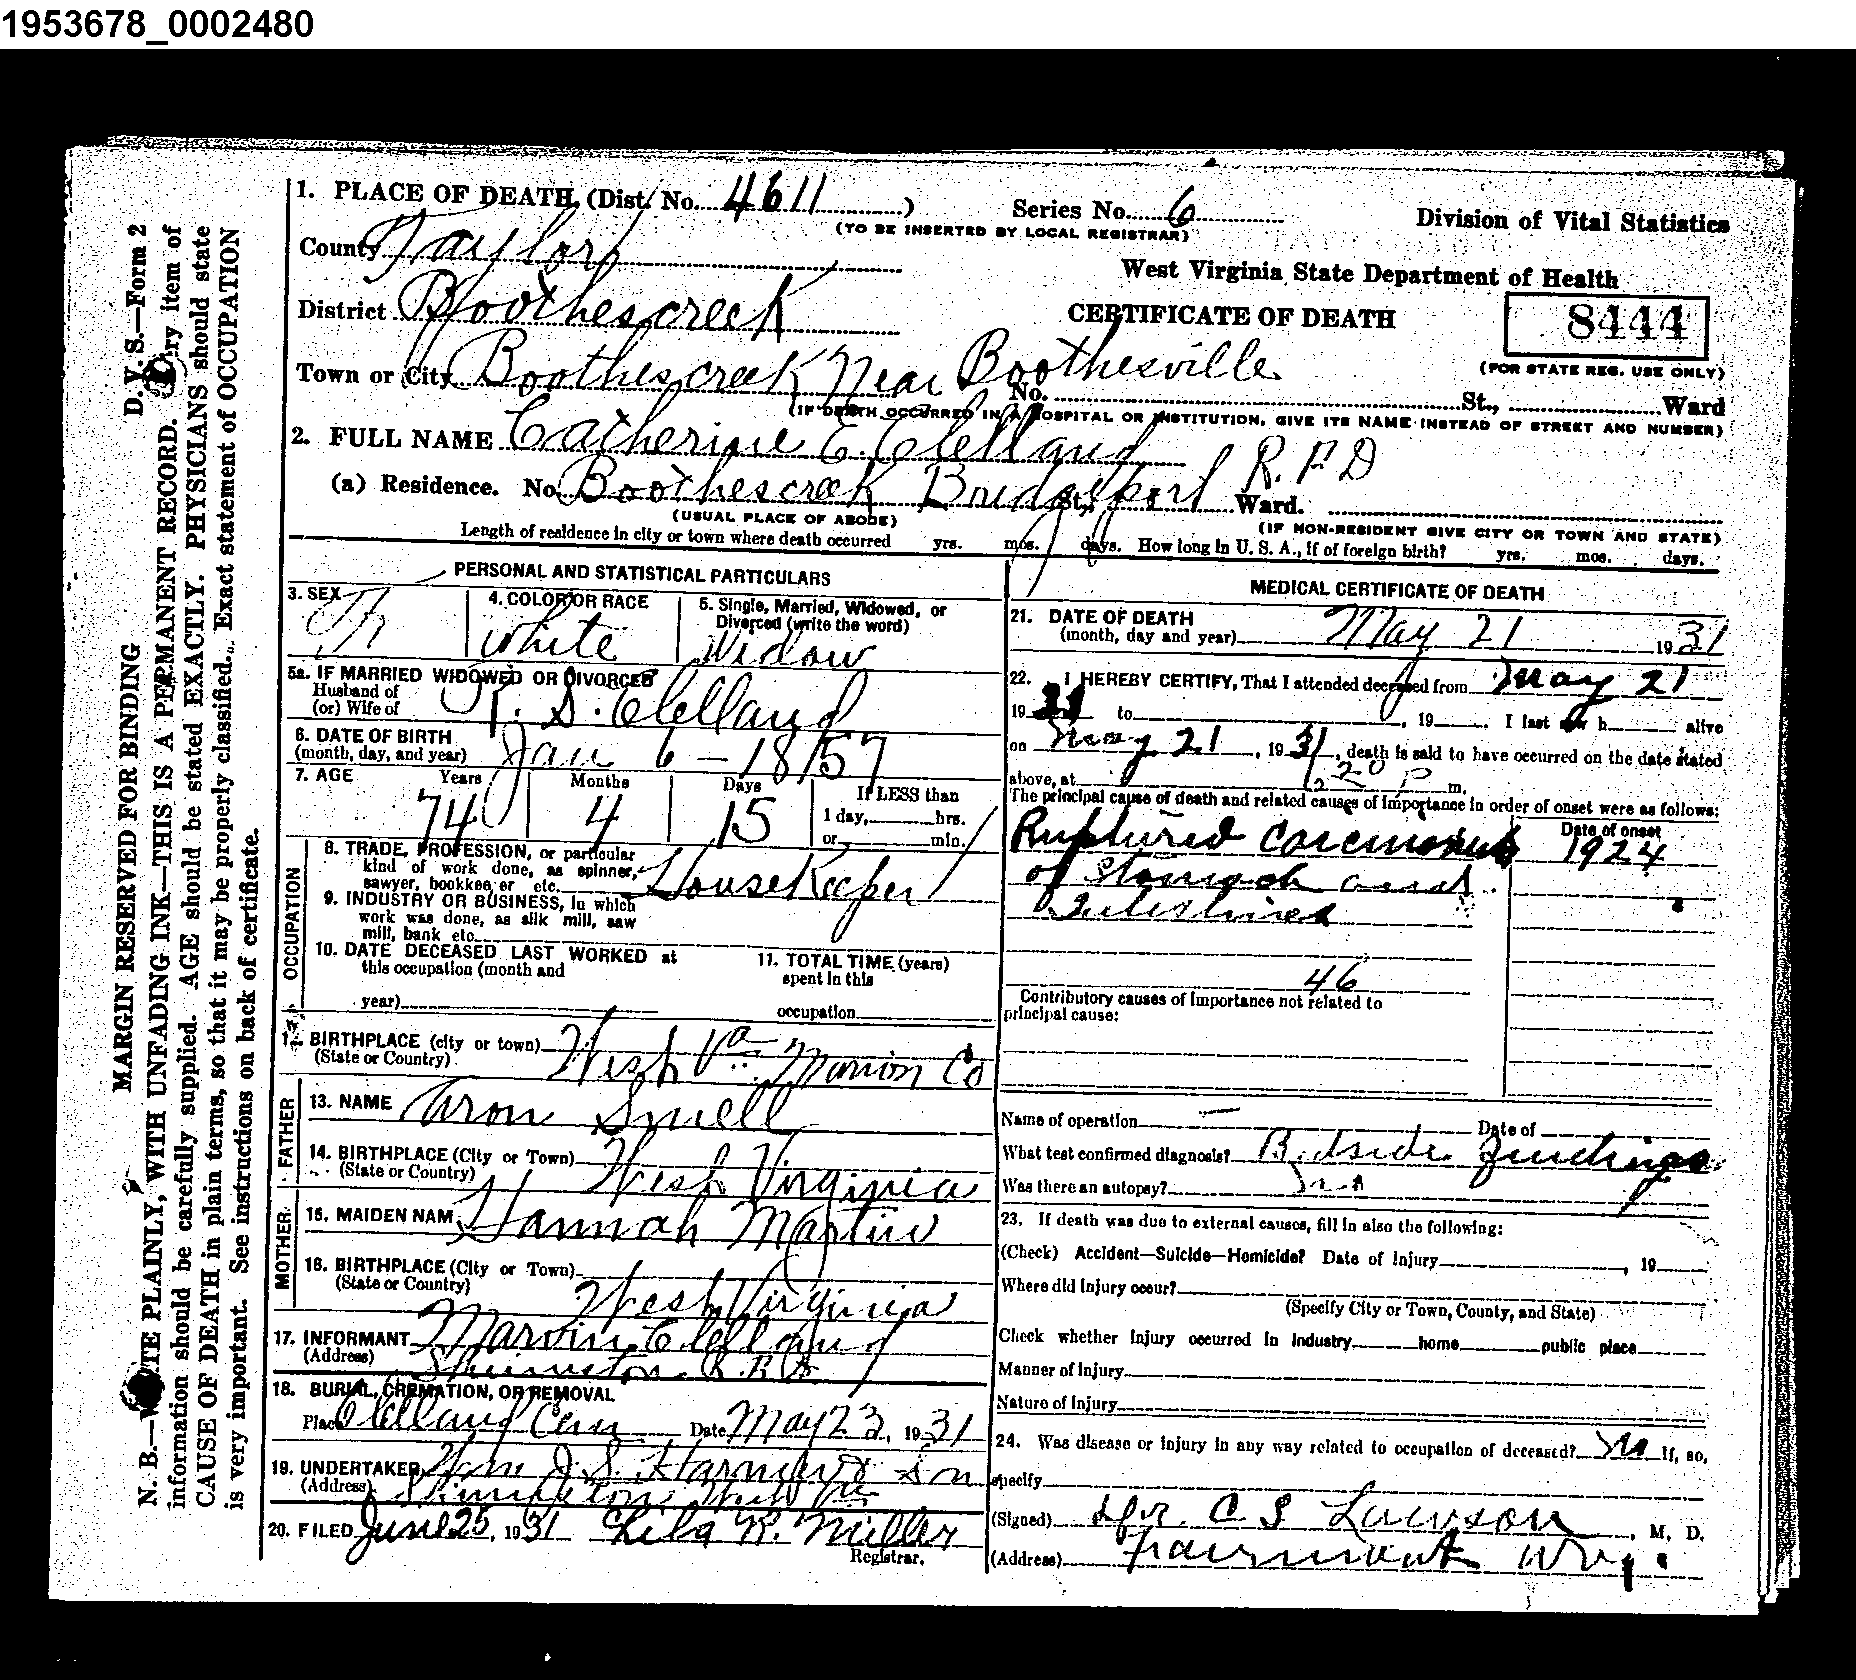 1953678_0002480
MARGIN RESERVED FOR BINDING D. V. S.—Form 2
N. B.—WRITE PLAINLY, WITH UNFADING INK—THIS IS A PERMANENT RECORD. Every item of
information should be carefully supplied. AGE should be stated EXACTLY. PHYSICIANS should state
CAUSE OF DEATH in plain terms, so that it may be properly classified. Exact statement of OCCUPATION
is very important. See instructions on back of certificate.
1. PLACE OF DEATH (Dist. No. 4611 ) Series No. 6
(TO BE INSERTED BY LOCAL REGISTRAR)
Division of Vital Statistics
County Taylor
West Virginia State Department of Health
District Boothescreek
CERTIFICATE OF DEATH
8444
(FOR STATE REG. USE ONLY)
Town or City Boothescreek Near Boothesville No. St., Ward
(IF DEATH OCCURRED IN A HOSPITAL OR INSTITUTION, GIVE ITS NAME INSTEAD OF STREET AND NUMBER)
2. FULL NAME Catherine E. Clelland
(a) Residence. No. Boothescreek Bridgeport R. F D Ward.
(USUAL PLACE OF ABODE) (IF NON-RESIDENT GIVE CITY OR TOWN AND STATE)
Length of residence in city or town where death occurred yrs. mos. days. How long in U. S. A., if of foreign birth? yrs. mos. days.
PERSONAL AND STATISTICAL PARTICULARS
3. SEX 4. COLOR OR RACE 5. Single, Married, Widowed, or
Divorced (write the word)
White Widow
5a. IF MARRIED WIDOWED OR DIVORCED
Husband of
(or) Wife of S. Clelland
6. DATE OF BIRTH
(month, day, and year) Jan 6 - 1857
7. AGE Years Months Days If LESS than
74 4 15 1 day, hrs.
or min.
OCCUPATION
8. TRADE, PROFESSION, or particular
kind of work done, as spinner,
sawyer, bookkeeper etc. HouseKeeper
9. INDUSTRY OR BUSINESS, in which
work was done, as silk mill, saw
mill, bank etc.
10. DATE DECEASED LAST WORKED at
this occupation (month and
year)
11. TOTAL TIME (years)
spent in this
occupation
12. BIRTHPLACE (city or town)
(State or Country) West Va Marion Co
FATHER
13. NAME Aron Smell
14. BIRTHPLACE (City or Town)
(State or Country) West Virginia
MOTHER
15. MAIDEN NAM Hannah Martin
16. BIRTHPLACE (City or Town)
(State or Country) West Virginia
17. INFORMANT Marvin Clelland
(Address) Shinnston R.F.D.
18. BURIAL, CREMATION, OR REMOVAL
Place Clelland Cem Date May 23, 1931
19. UNDERTAKER J. S. Harmer & Son
(Address) Shinnston West Va
20. FILED June 25, 1931 Lila R. Miller
Registrar.
MEDICAL CERTIFICATE OF DEATH
21. DATE OF DEATH
(month, day and year) May 21 1931
22. I HEREBY CERTIFY, That I attended deceased from May 21
1931 to , 19 . I last saw h alive
on May 21, 1931, death is said to have occurred on the date stated
above, at P m.
The principal cause of death and related causes of importance in order of onset were as follows:
Date of onset
Ruptured Carcinoma 1924
of Stomach and
Intestines
46
Contributory causes of importance not related to
principal cause:
Name of operation — Date of
What test confirmed diagnosis? Bedside findings
Was there an autopsy? no
23. If death was due to external causes, fill in also the following:
(Check) Accident—Suicide—Homicide? Date of injury , 19
Where did injury occur?
(Specify City or Town, County, and State)
Check whether injury occurred in industry home public place
Manner of injury
Nature of injury
24. Was disease or injury in any way related to occupation of deceased? no If, so,
specify
(Signed) Dr. C S Lawson, M. D.
(Address) Fairmont W Va.